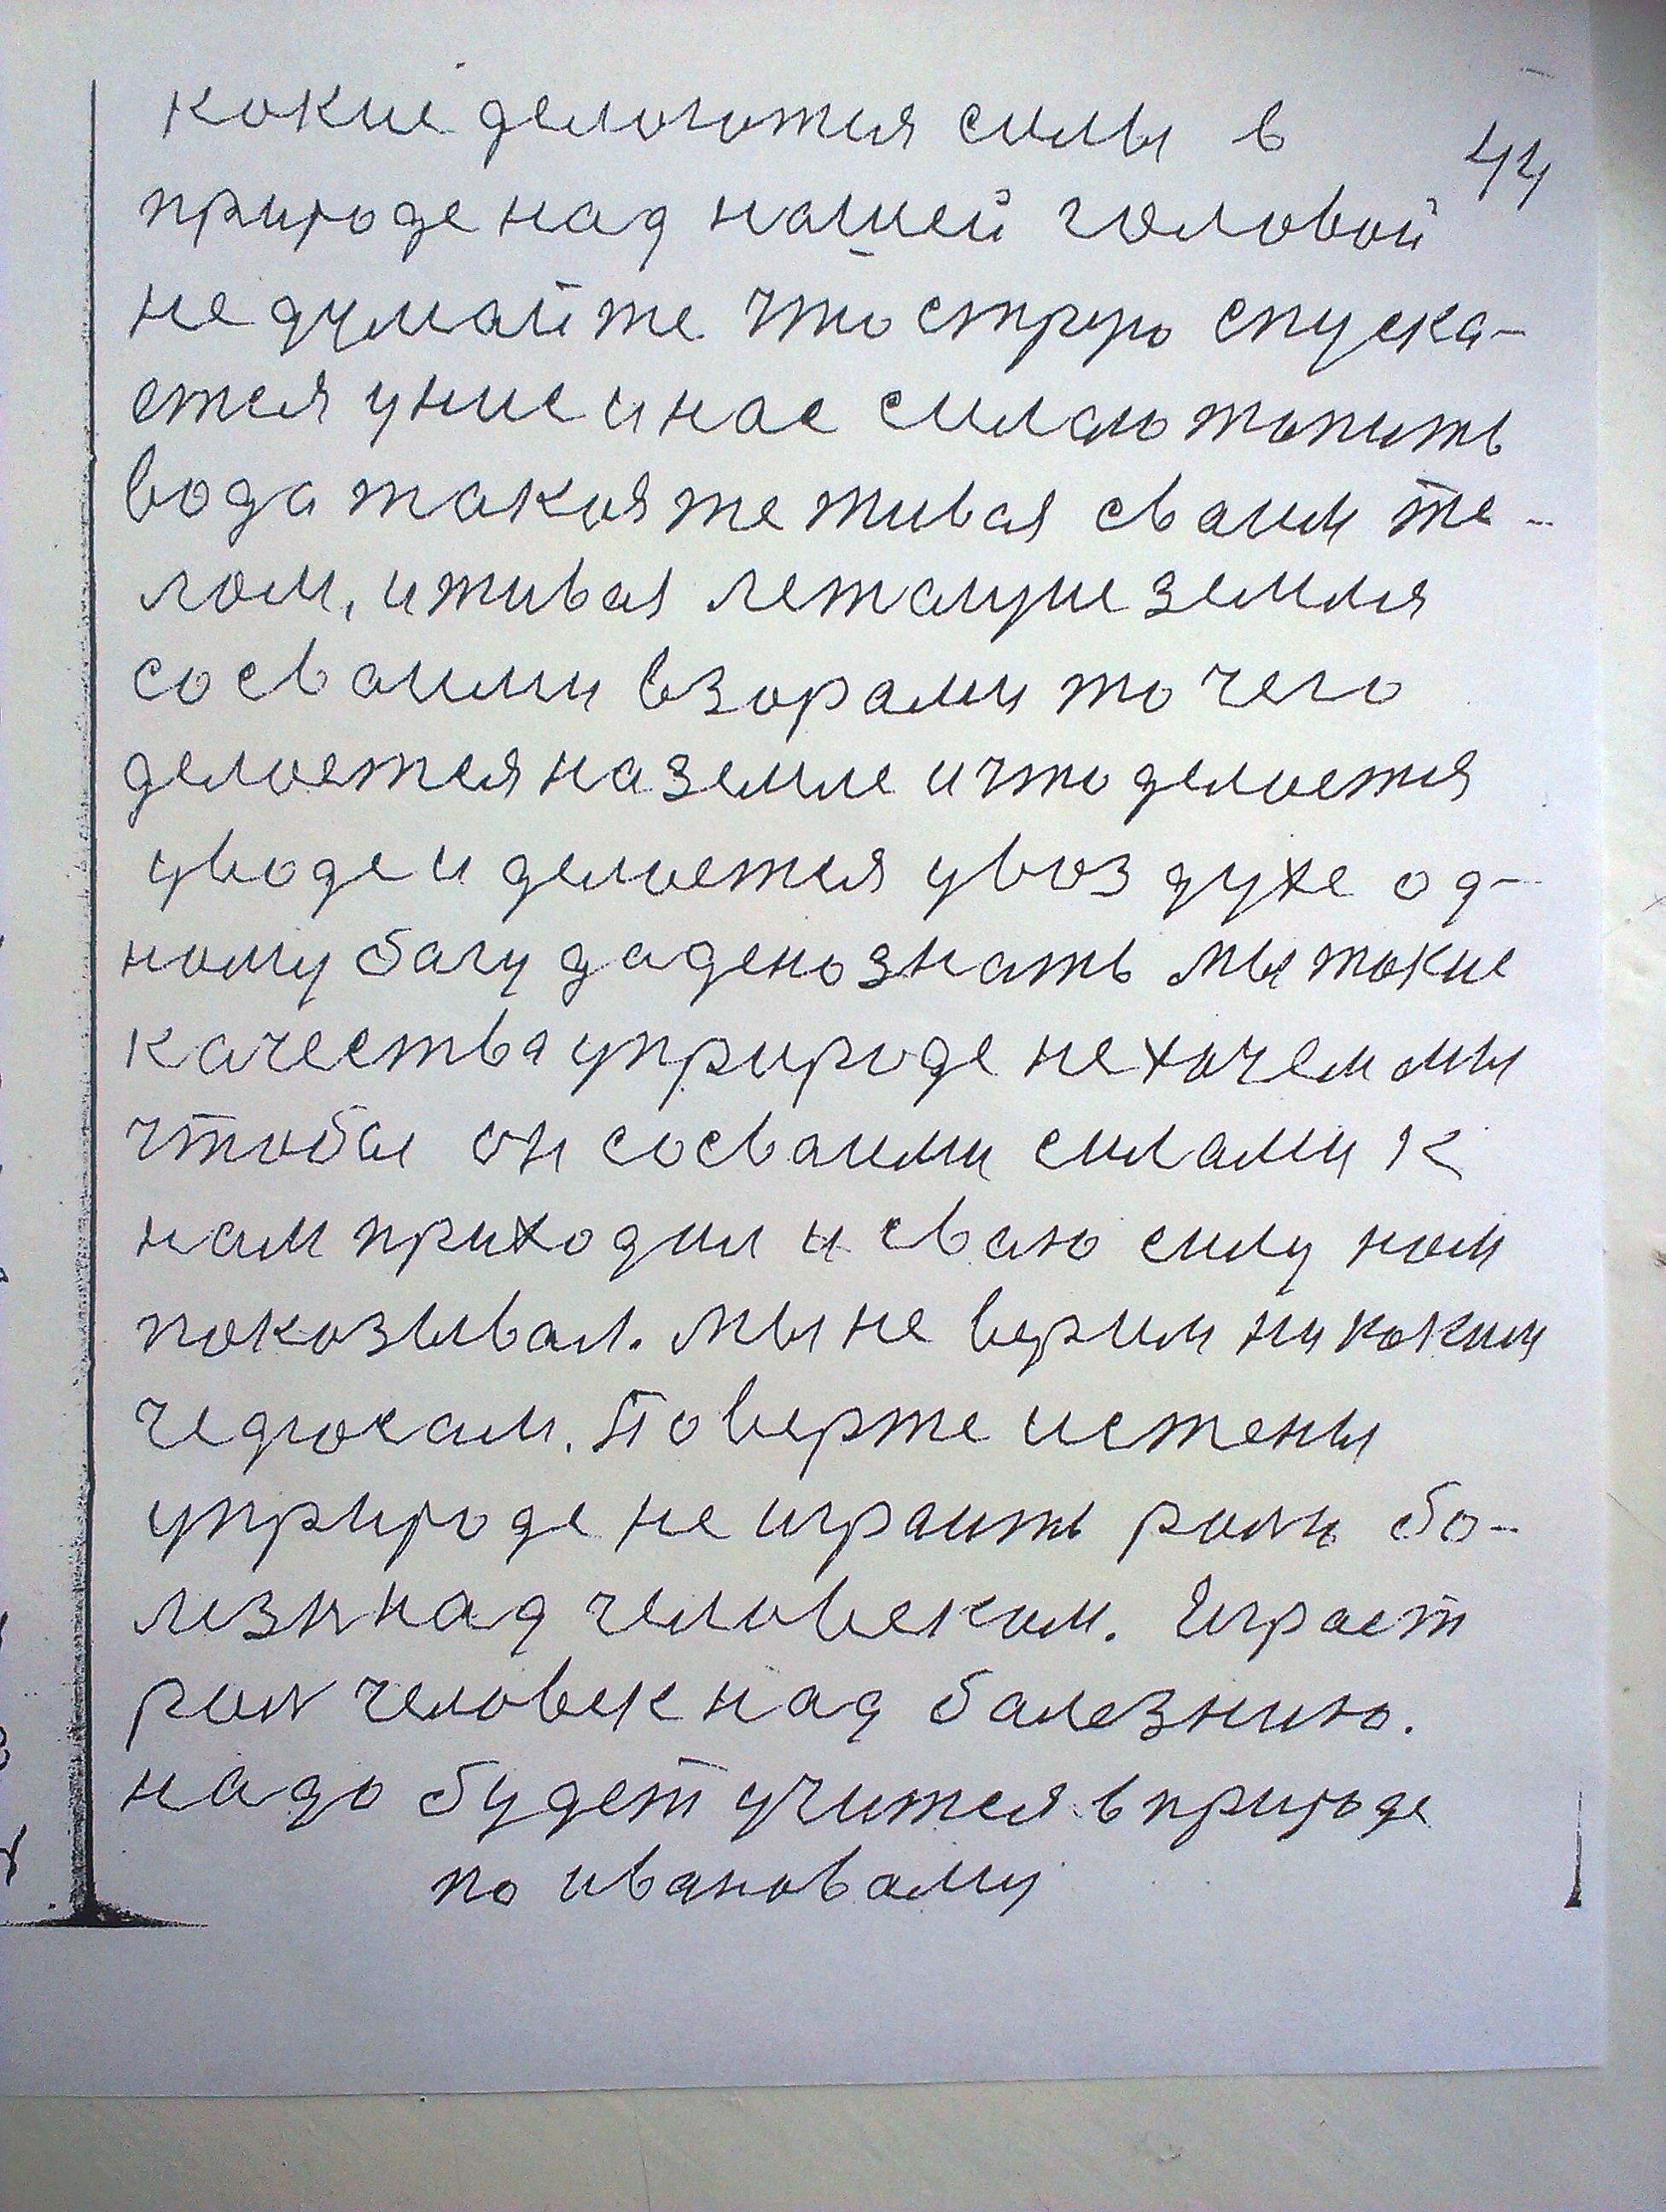 какие делаютия силы в
44
природе над нашей головой
не думайте что струю спуска-
ется унис и нас силаю топить
вода такая же живая сваим те-
лом, и живая летающие земля
со сваими взорами то чего
делается на земле и что делается
уводе и делается увоздухе од-
ному багу дадено знать мы такие
качества уприроде не хочем мы
чтобы он сосваими силами к
нам приходил и сваю силу нам
показывал. мы не верим никаким
чедюсам. Поверте истены
уприроде не играить роль бо-
лезн над человеком. Играет
рол человек над балезнию.
надо будет учится в природе
по ивановаму